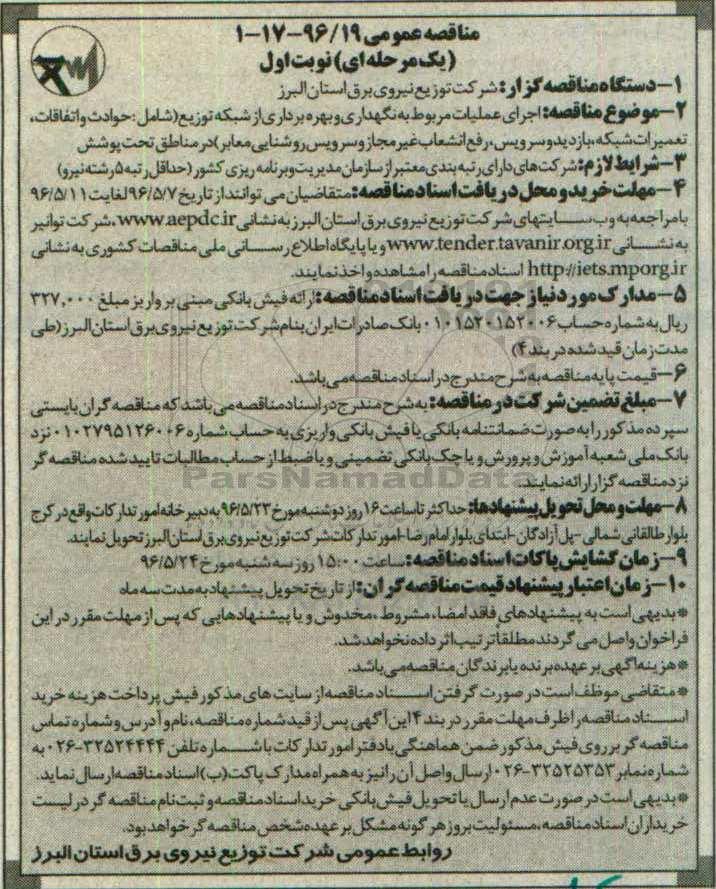 مناقصه عمومی ۹۶/۱۹-۱۷-۱
(یک مرحله ای) نوبت اول
۱-دستگاه مناقصه گزار: شرکت توزیع نیروی برق استان البرز
۲-موضوع مناقصه: اجرای عملیات مربوط به نگهداری و بهره برداری از شبکه توزیع (شامل: حوادث و اتفاقات،
تعمیرات شبکه، بازدید و سرویس، رفع انشعاب غیر مجاز و سرویس روشنایی معابر) در مناطق تحت پوشش
۳-شرایط لازم: شرکت های دارای رتبه بندی معتبر از سازمان مدیریت و برنامه ریزی کشور (حداقل رتبه ۵ رشته نیرو)
۴-مهلت خرید و محل دریافت اسناد مناقصه: متقاضیان می توانند از تاریخ ۹۶/۵/۷ لغایت ۹۶/۵/۱۱
با مراجعه به وب سایتهای شرکت توزیع نیروی برق استان البرز به نشانی www.aepdc.ir، شرکت توانیر
به نشانی www.tender.tavanir.org.ir و یا پایگاه اطلاع رسانی ملی مناقصات کشوری به نشانی
http://iets.mporg.ir اسناد مناقصه را مشاهده و اخذ نمایند.
۵-مدارک مورد نیاز جهت دریافت اسناد مناقصه: ارائه فیش بانکی مبنی بر واریز مبلغ ۳۲۷,۰۰۰
ریال به شماره حساب ۰۱۰۱۵۲۰۱۵۲۰۰۶ بانک صادرات ایران بنام شرکت توزیع نیروی برق استان البرز (طی
مدت زمان قید شده در بند ۴)
۶-قیمت پایه مناقصه به شرح مندرج در اسناد مناقصه می باشد.
۷-مبلغ تضمین شرکت در مناقصه: به شرح مندرج در اسناد مناقصه می باشد که مناقصه گران بایستی
سپرده مذکور را به صورت ضمانتنامه بانکی یا فیش بانکی واریزی به حساب شماره ۰۱۰۲۷۹۵۱۲۶۰۰۶ نزد
بانک ملی شعبه آموزش و پرورش و یا چک بانکی تضمینی و یا ضبط از حساب مطالبات تایید شده مناقصه گر
نزد مناقصه گزار ارائه نمایند.
ParsNamadData
۸-مهلت و محل تحویل پیشنهادها: حداکثر تا ساعت ۱۶ روز دوشنبه مورخ ۹۶/۵/۲۳ به دبیرخانه امور تدارکات واقع در کرج
بلوار طالقانی شمالی -پل آزادگان -ابتدای بلوار امام رضا -امور تدارکات شرکت توزیع نیروی برق استان البرز تحویل نمایند.
۹-زمان گشایش پاکات اسناد مناقصه: ساعت ۱۵:۰۰ روز سه شنبه مورخ ۹۶/۵/۲۴
۱۰-زمان اعتبار پیشنهاد قیمت مناقصه گران: از تاریخ تحویل پیشنهاد به مدت سه ماه
*بدیهی است به پیشنهادهای فاقد امضاء، مشروط، مخدوش و یا پیشنهادهایی که پس از مهلت مقرر در این
فراخوان واصل می گردند مطلقاً ترتیب اثر داده نخواهد شد.
*هزینه آگهی بر عهده برنده یا برندگان مناقصه می باشد.
*متقاضی موظف است در صورت گرفتن اسناد مناقصه از سایت های مذکور فیش پرداخت هزینه خرید
اسناد مناقصه را ظرف مهلت مقرر در بند ۴ این آگهی پس از قید شماره مناقصه، نام و آدرس و شماره تماس
مناقصه گر بر روی فیش مذکور ضمن هماهنگی با دفتر امور تدارکات با شماره تلفن ۳۲۵۲۴۴۴۴-۰۲۶ به
شماره نمابر ۳۲۵۲۵۳۵۳-۰۲۶ ارسال و اصل آن را نیز به همراه مدارک پاکت (ب) اسناد مناقصه ارسال نماید.
*بدیهی است در صورت عدم ارسال یا تحویل فیش بانکی خرید اسناد مناقصه و ثبت نام مناقصه گر در لیست
خریداران اسناد مناقصه، مسئولیت بروز هر گونه مشکل بر عهده شخص مناقصه گر خواهد بود.
روابط عمومی شرکت توزیع نیروی برق استان البرز